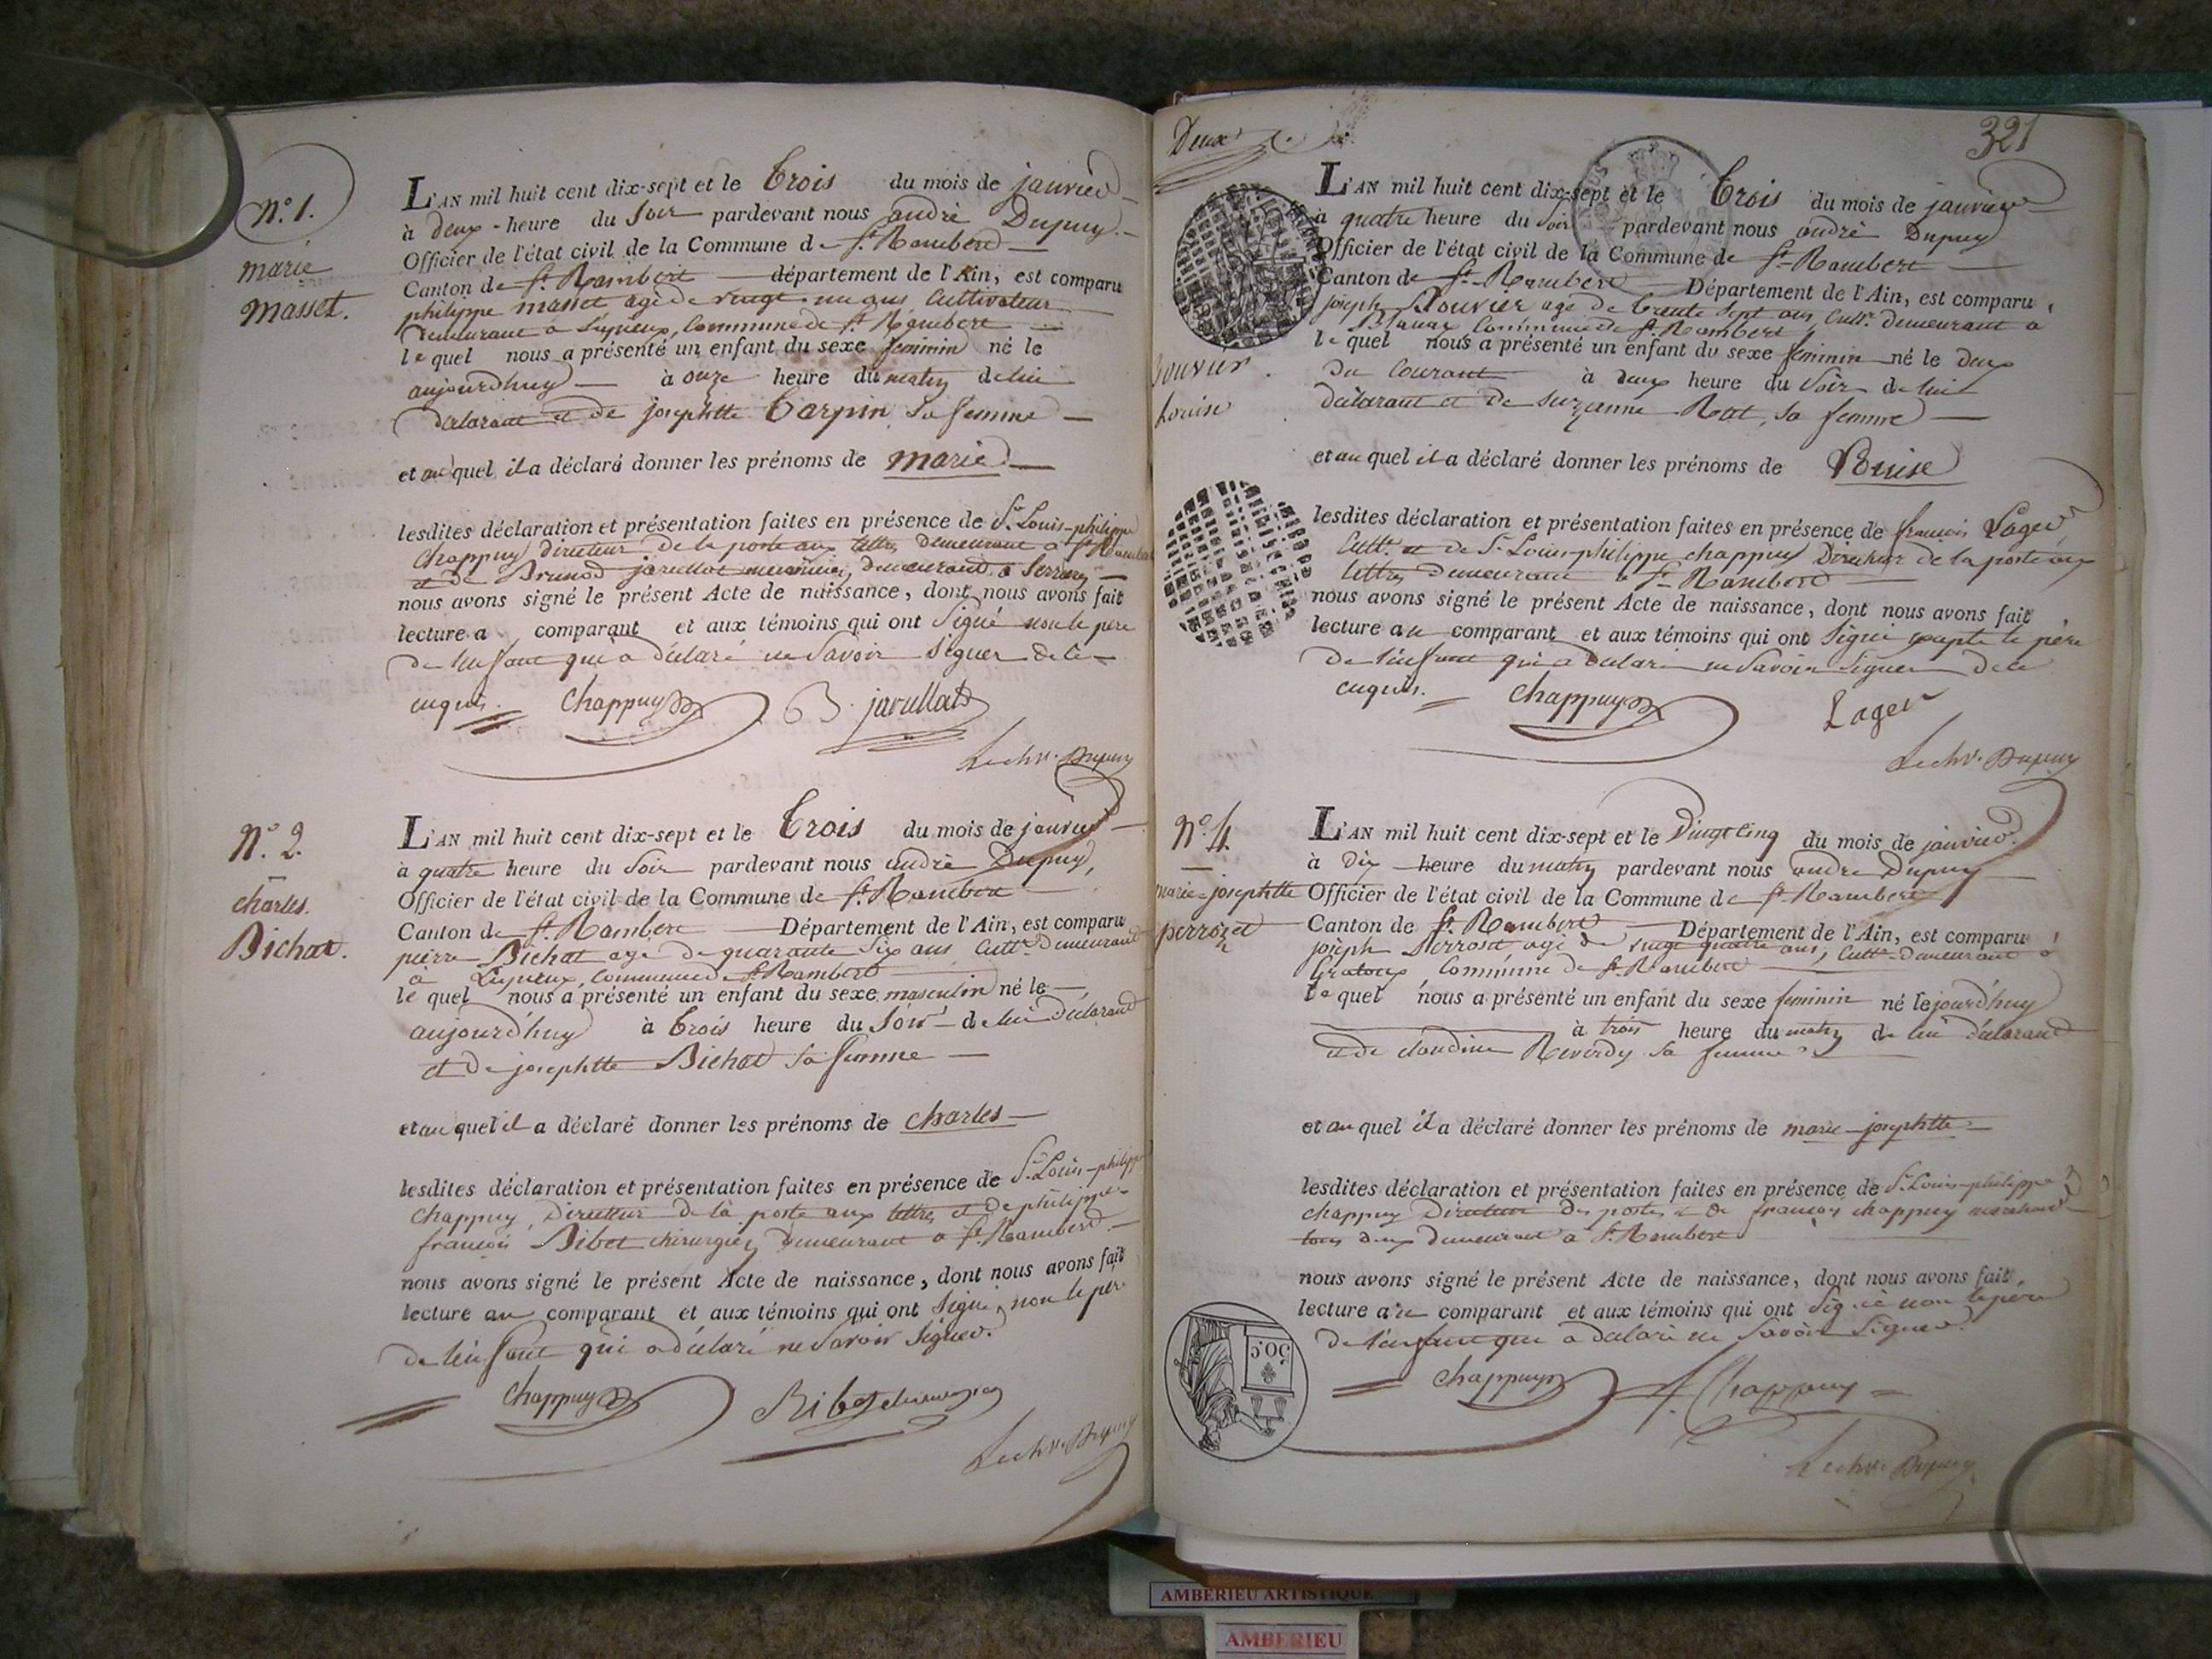 N.º 1.
marie
Masset.
L'AN mil huit cent dix-sept et le Trois du mois de janvier
à deux heure du Soir pardevant nous andré Dupuy
Officier de l'état civil de la Commune de St. Rambert
Canton de St. Rambert département de l'Ain, est comparu
philippe masset agé de vingt un ans Cultivateur
demeurant a Lupieux, Commune de St. Rambert
le quel nous a présenté un enfant du sexe feminin né le
aujourdhuy à onze heure du matin de lui
déclarant et de josephtte Carpin Sa femme
et au quel il a déclaré donner les prénoms de marie
lesdites déclaration et présentation faites en présence de Sr. Louis-philippe
Chappuy directeur de la poste aux lettres demeurant a St. Rambert
et de Brunod jarullat meunier demeurant a Serrieres
nous avons signé le présent Acte de naissance, dont nous avons fait
lecture a comparant et aux témoins qui ont Signé non le pere
de lenfant qui a déclaré ne Savoir Signer de ce
enquis. Chappuy B. jarullat
Lechr. Dupuy
N.º 2.
charles.
Bichat.
L'AN mil huit cent dix-sept et le Trois du mois de janvier
à quatre heure du Soir pardevant nous andré Dupuy,
Officier de l'état civil de la Commune de St. Rambert
Canton de St. Rambert Département de l'Ain, est comparu
pierre Bichat agé de quarante Six ans, Cultr. demeurant
a Lupieux, Commune de St. Rambert
le quel nous a présenté un enfant du sexe masculin né le
aujourd'huy à Trois heure du Soir de lui déclarant
et de josephtte Bichat Sa femme
et au quel il a déclaré donner les prénoms de charles
lesdites déclaration et présentation faites en présence de Sr. Louis-philippe
Chappuy, Directeur de la poste aux lettres et de philippe
françois Ribet chirurgien demeurant a St. Rambert.
nous avons signé le présent Acte de naissance, dont nous avons fait
lecture au comparant et aux témoins qui ont Signé, non le pere
de lenfant qui a déclaré ne Savoir Signer.
Chappuy Ribet chirurgien
Lechr. Dupuy
Deux
321
Bouvier
Louise
L'AN mil huit cent dix-sept et le Trois du mois de janvier
à quatre heure du Soir pardevant nous andré Dupuy
Officier de l'état civil de la Commune de St. Rambert
Canton de St. Rambert Département de l'Ain, est comparu
joseph Bouvier agé de trente Sept ans, Cultr. demeurant a
Blanaz Commune de St. Rambert
le quel nous a présenté un enfant du sexe feminin né le deux
du Courant à deux heure du Soir de lui
déclarant et de suzanne Rat, sa femme
et au quel il a déclaré donner les prénoms de Louise
lesdites déclaration et présentation faites en présence de françois Lager
Cultr. et de Sr. Louis-philippe chappuy Directeur de la poste aux
lettres demeurant a St. Rambert
nous avons signé le présent Acte de naissance, dont nous avons fait
lecture au comparant et aux témoins qui ont Signé excepte le père
de l'enfant qui a déclaré ne Savoir Signer de ce
enquis. Chappuy Lager
Lechr. Dupuy
Nº. 4.
marie-josephtte
perrozet
L'AN mil huit cent dix-sept et le Vingt cinq du mois de janvier
à dix heure du matin pardevant nous andre Dupuy
Officier de l'état civil de la Commune de St. Rambert
Canton de St. Rambert Département de l'Ain, est comparu
joseph Perrozet agé de vingt quatre ans, Cultr. demeurant a
Gratoux Commune de St. Rambert
le quel nous a présenté un enfant du sexe feminin né le jourd'huy
à trois heure du matin de lui déclarant
et de claudine Reverdy sa femme
et au quel il a déclaré donner les prénoms de marie josephtte
lesdites déclaration et présentation faites en présence de Sr. Louis-philippe
chappuy Directeur des postes et de françois chappuy marchand
tous deux demeurant a St. Rambert
nous avons signé le présent Acte de naissance, dont nous avons fait
lecture au comparant et aux témoins qui ont Signé non le pere
de l'enfant qui a déclaré ne Savoir Signer.
Chappuy f. Chappuy
Lechr. Dupuy
50 C
AMBERIEU ARTISTIQUE
AMBERIEU